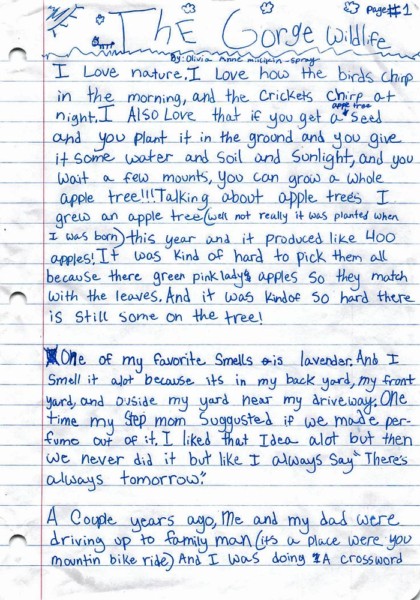 page#1
The Gorge Wildlife
By: Olivia Anne -spray
I Love nature. I Love how the birds chirp
in the morning, and the Crickets Chirp at
night. I Also Love that if you get a apple tree seed
and you plant it in the ground and you give
it some water and Soil and Sunlight, and you
wait a few mounts, you can grow a whole
apple tree!!! Talking about apple trees I
grew an apple tree (well not really it was planted when
I was born) this year and it produced like 400
apples! It was kind of hard to pick them all
because there green pinklady's apples so they match
with the leaves. And it was kindof so hard there
is still some on the tree!
One of my favorite Smells is lavender. And I
Smell it alot because its in my back yard, my front
yard, and ouside my yard near my driveway. One
time my Step mom Suggusted if we made per-
fume out of it. I liked that Idea alot but then
we never did it but like I always Say "There's
always tomorrow".
A Couple years ago, Me and my dad were
driving up to family man (its a place were you
mountin bike ride) And I was doing A crossword